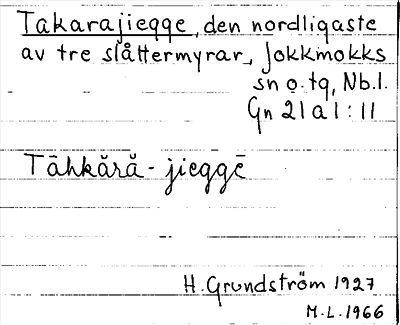 Takarajiegge, den nordligaste
av tre slåttermyrar, Jokkmokks
sn o. tg, Nb.l.
Gn 21 a 1 : 11
Tāhkără - jieggē
H. Grundström 1927
M.L. 1966